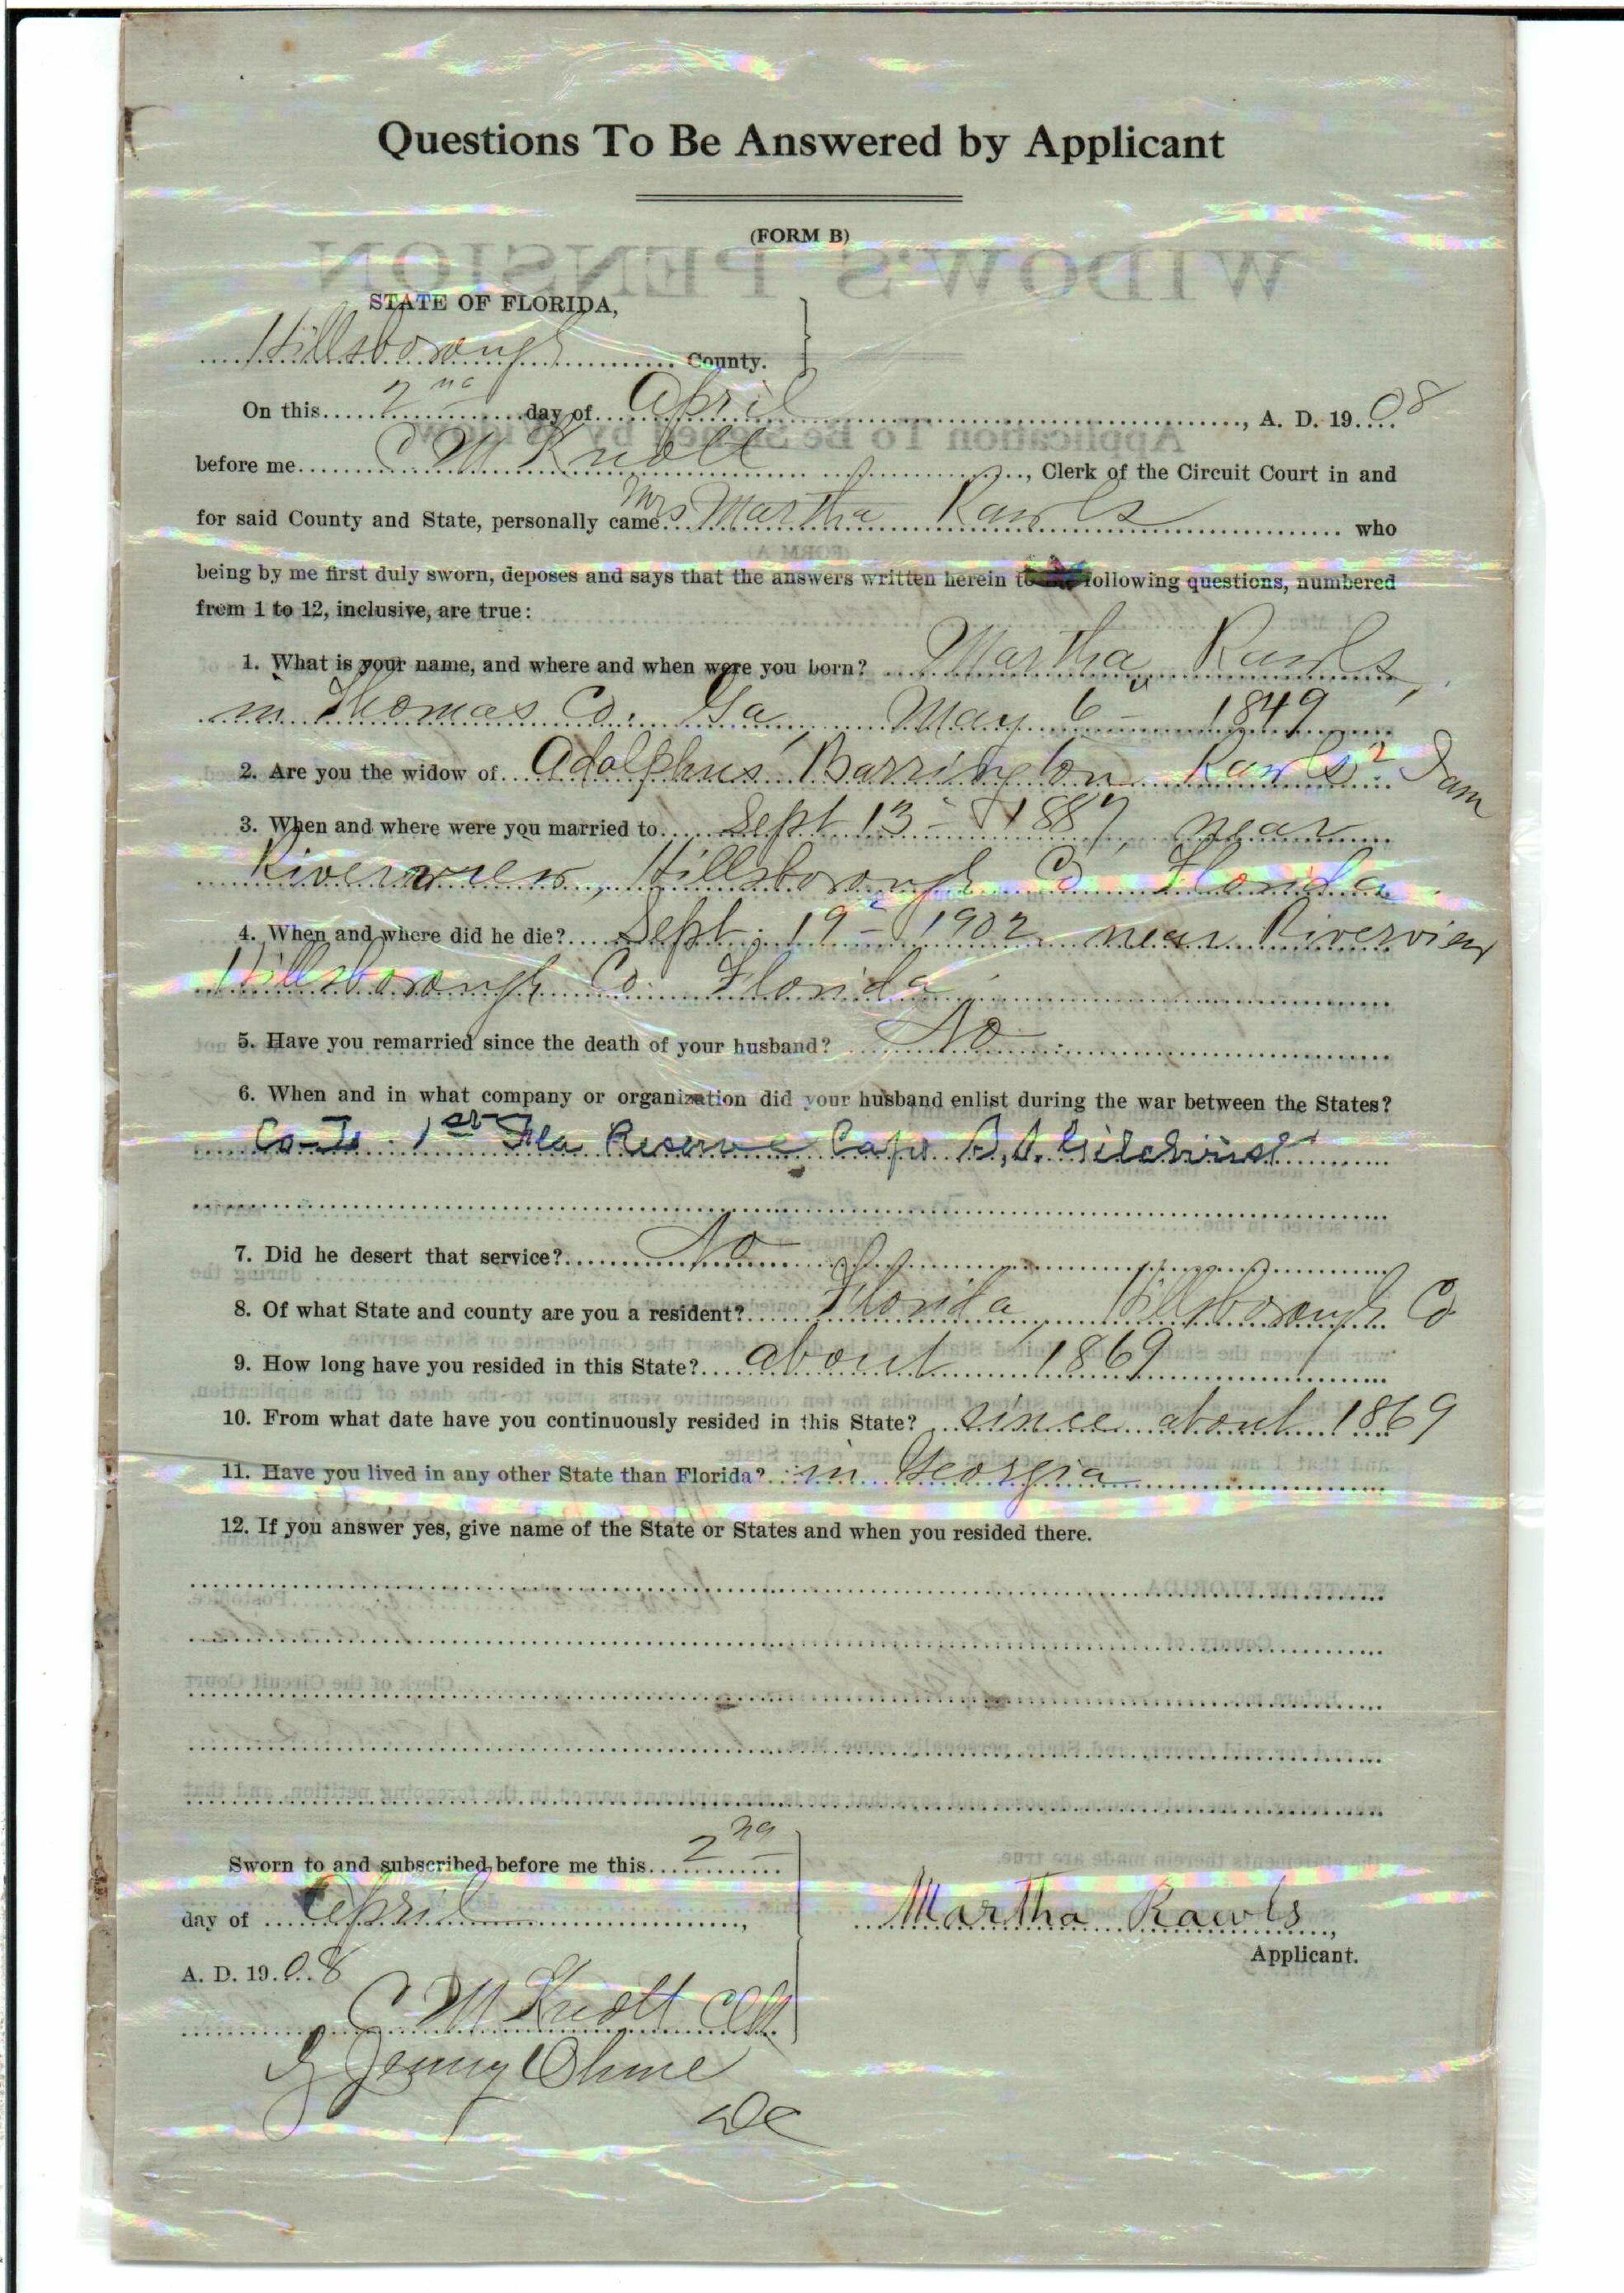 Questions To Be Answered by Applicant
(FORM B)
WIDOW'S PENSION
STATE OF FLORIDA,
Hillsborough County.
On this 2nd day of April, A. D. 1908
before me C M Knott, Clerk of the Circuit Court in and
for said County and State, personally came Mrs Martha Rawls who
being by me first duly sworn, deposes and says that the answers written herein to following questions, numbered
from 1 to 12, inclusive, are true:
1. What is your name, and where and when were you born? Martha Rawls,
in Thomas Co. Ga, May 6 - 1849
2. Are you the widow of Adolphus Barrington Rawls? I am
3. When and where were you married to Sept 13 - 1887, near
Riverview, Hillsborough Co Florida
4. When and where did he die? Sept. 19 - 1902 near Riverview
Hillsborough Co. Florida
5. Have you remarried since the death of your husband? No
6. When and in what company or organization did your husband enlist during the war between the States?
1st Fla Reserve Capt Gilchrist
7. Did he desert that service? No
8. Of what State and county are you a resident? Florida, Hillsborough Co
9. How long have you resided in this State? about 1869
10. From what date have you continuously resided in this State? since about 1869
11. Have you lived in any other State than Florida? in Georgia
12. If you answer yes, give name of the State or States and when you resided there.
Sworn to and subscribed before me this 2nd
day of April,
A. D. 1908
Martha Rawls,
Applicant.
C M Knott Clk
Ohme
DC